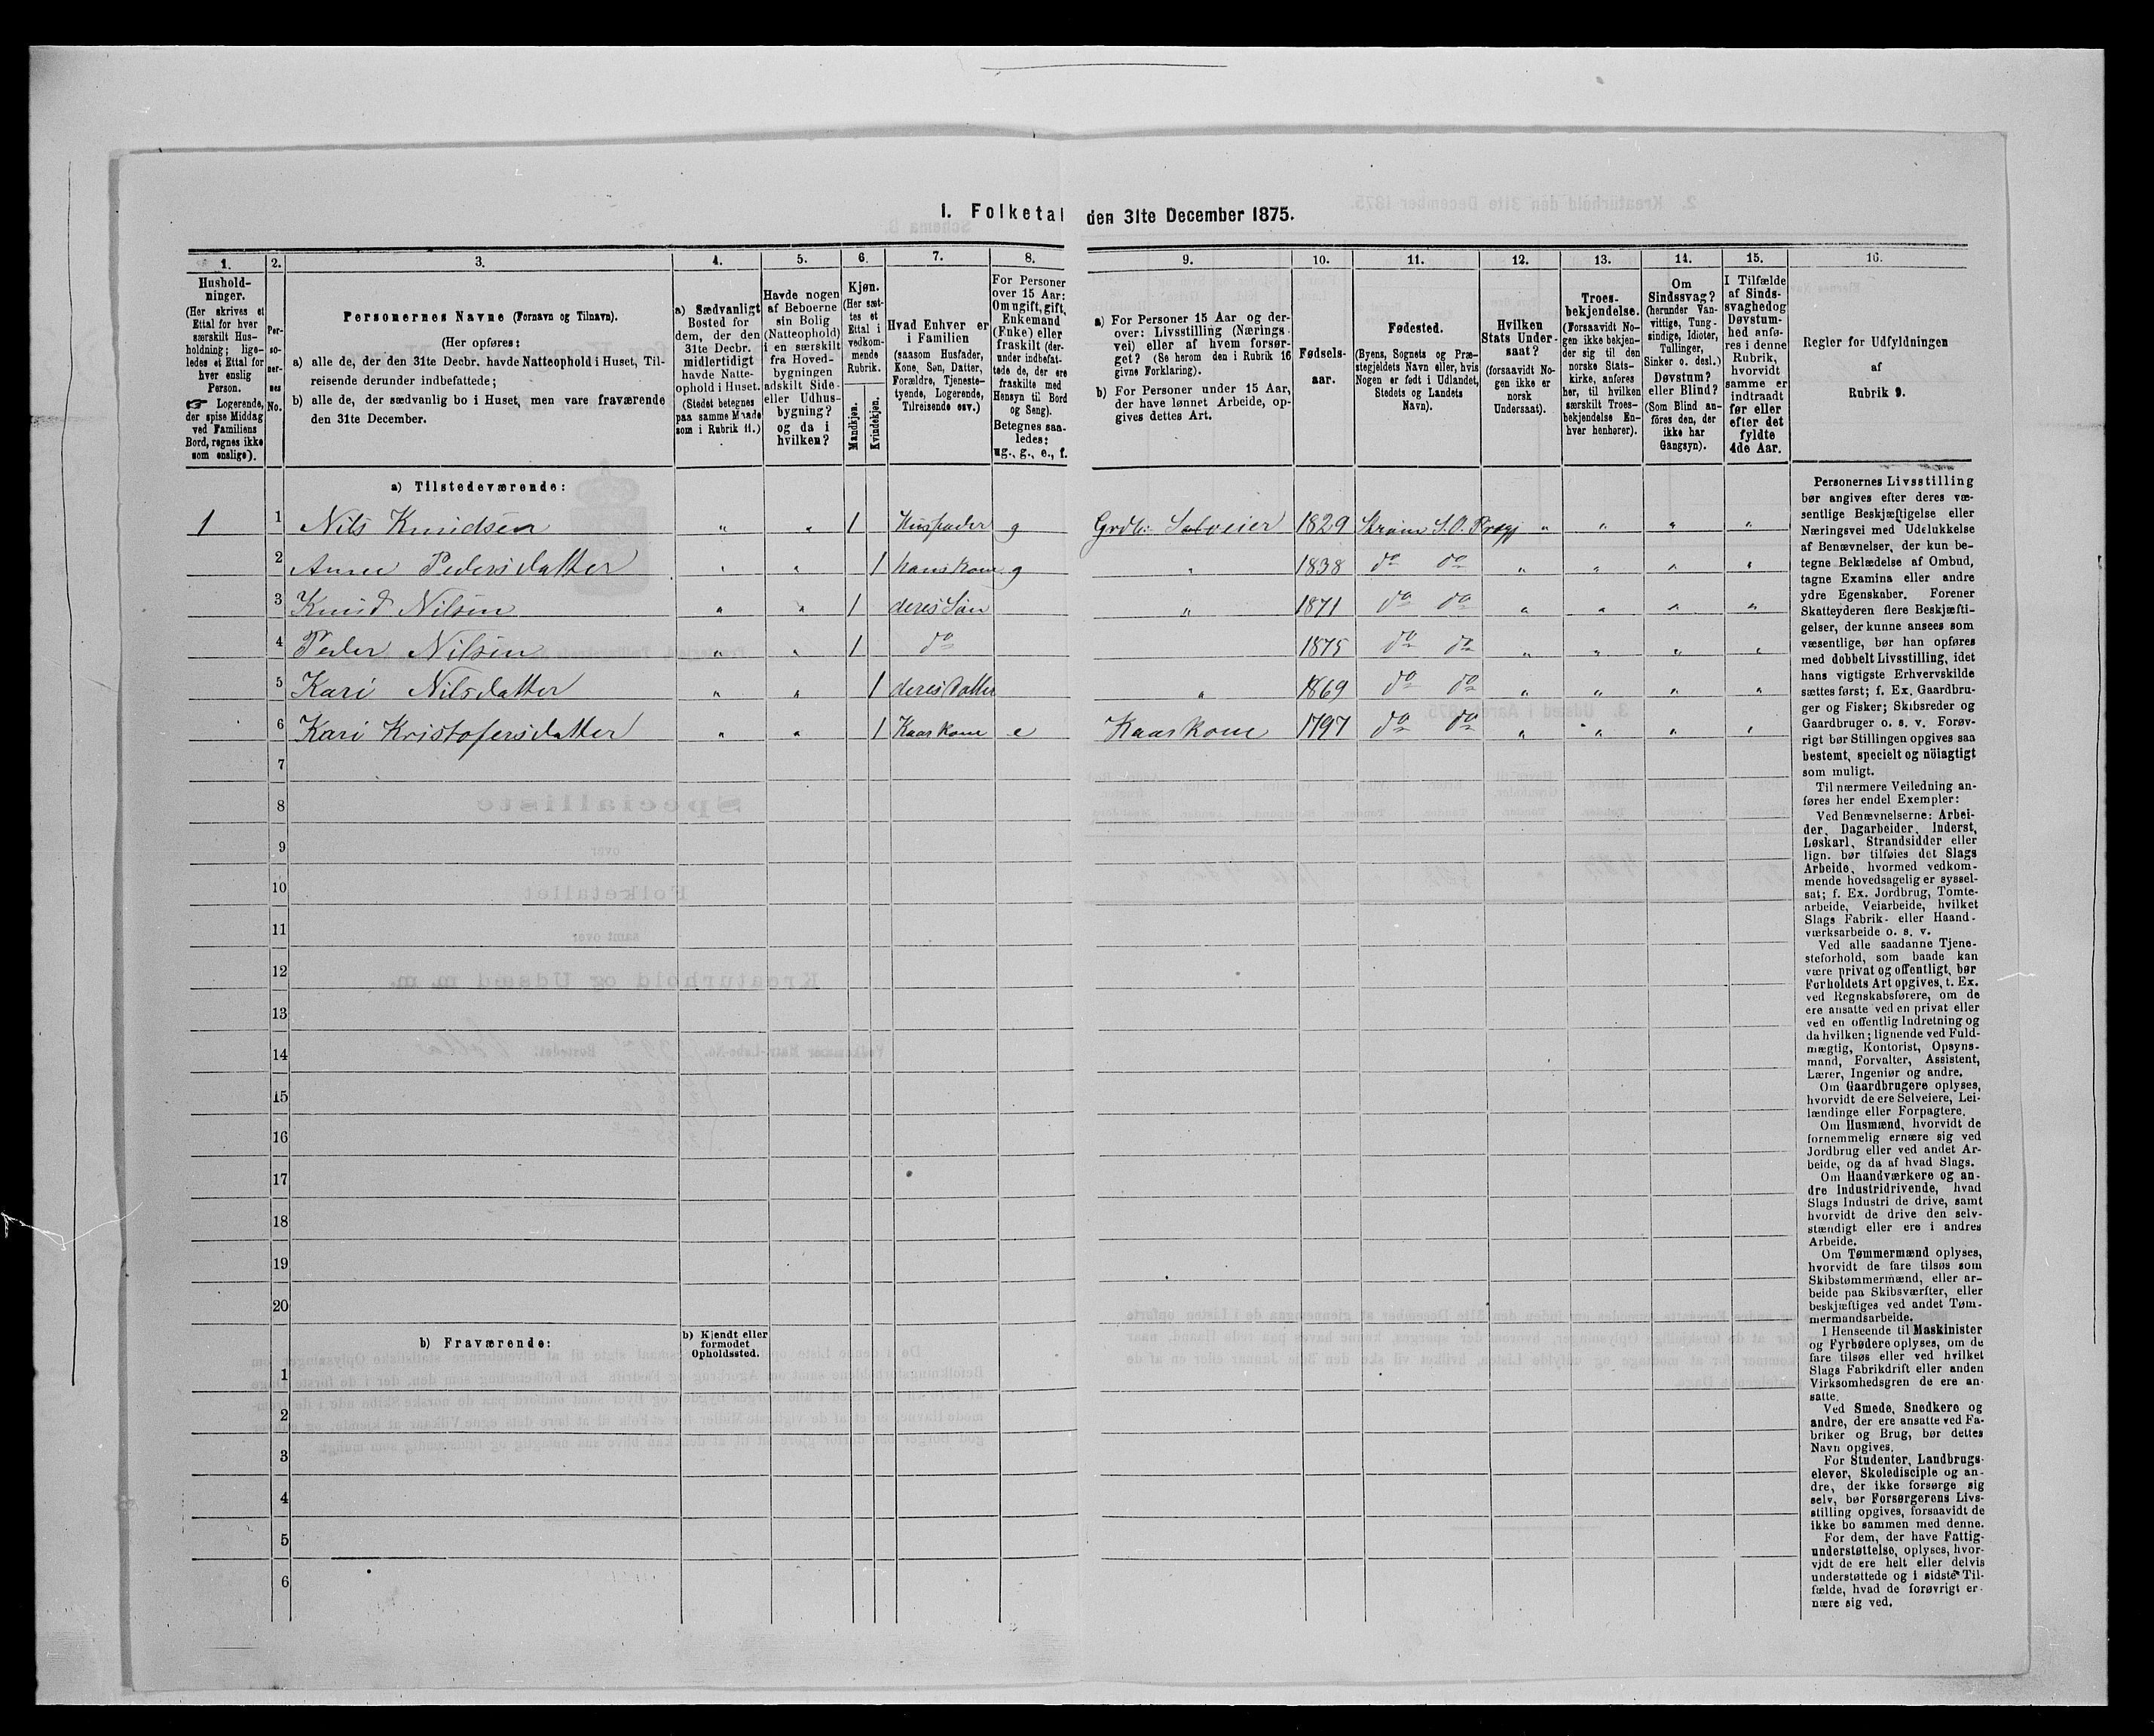 I. Folketal den 31te December 1875.
1.
Hushold-
ninger.
(Her skrives et
Ettal for hver
særskilt Hus-
holdning; lige-
ledes et Ettal for
hver enslig
Person.
☞ Logerende,
der spise Middag
ved Familiens
Bord, regnes ikke
som enslige).
2.
Per-
so-
ner-
nes
No.
3.
Personernes Navne (Fornavn og Tilnavn).
(Her opføres:
a) alle de, der den 31te Decbr. havde Natteophold i Huset, Til-
reisende derunder indbefattede;
b) alle de, der sædvanlig bo i Huset, men vare fraværende
den 31te December.
4.
a) Sædvanligt
Bosted for
dem, der den
31te Decbr.
midlertidigt
havde Natte-
ophold i Huset.
(Stedet betegnes
paa samme Maade
som i Rubrik 11.)
5.
Havde nogen
af Beboerne
sin Bolig
(Natteophold)
i en særskilt
fra Hoved-
bygningen
adskilt Side-
eller Udhus-
bygning?
og da i
hvilken?
6.
Kjøn.
(Her sæt-
tes et
Ettal i
vedkom-
mende
Rubrik.
Mandkjøn.
Kvindekjøn.
7.
Hvad Enhver er
i Familien
(saasom Husfader,
Kone, Søn, Datter,
Forældre, Tjeneste-
tyende, Logerende,
Tilreisende osv.)
8.
For Personer
over 15 Aar:
Om ugift, gift,
Enkemand
(Enke) eller
fraskilt (der-
under indbefat-
tede de, der ere
fraskilte med
Hensyn til Bord
og Seng).
Betegnes saa-
ledes:
ug., g., e., f.
9.
a) For Personer 15 Aar og der-
over: Livsstilling (Nærings-
vei) eller af hvem forsør-
get? (Se herom den i Rubrik 16
givne Forklaring).
b) For Personer under 15 Aar,
der have lønnet Arbeide, op-
gives dettes Art.
10.
Fødsels-
aar.
11.
Fødested.
(Byens, Sognets og Præ-
stegjeldets Navn eller, hvis
Nogen er født i Udlandet,
Stedets og Landets
Navn).
12.
Hvilken
Stats Under-
saat?
(forsaavidt No-
gen ikke er
norsk
Undersaat).
13.
Troes-
bekjendelse.
(Forsaavidt No-
gen ikke bekjen-
der sig til den
norske Stats-
kirke, anføres
her, til hvilken
særskilt Troes-
bekjendelse En-
hver henhører).
14.
Om
Sindssvag?
(herunder Van-
vittige, Tung-
sindige, Idioter,
Tullinger,
Sinker o. desl.)
Døvstum?
eller Blind?
(Som Blind an-
føres den, der
ikke har
Gangsyn).
15.
I Tilfælde
af Sinds-
svaghed og
Døvstum-
hed anfø-
res i denne
Rubrik,
hvorvidt
samme er
indtraadt
før eller
efter det
fyldte
4de Aar.
16.
Regler for Udfyldningen
af
Rubrik 9.
a) Tilstedeværende:
1 1 Nils Knudsen " " 1 Husfader g Grdb: Selveier 1829 Strøm S. O. Prægj " " " "
2 Anne Pedersdatter " " 1 hans kone g " 1838 do do " " " "
3 Knud Nilsen " " 1 deres Søn " 1871 do do " " " "
4 Peder Nilsen " " 1 do 1875 do do " " " "
5 Kari Nilsdatter " " 1 deres Datter " 1869 do do " " " "
6 Kari Kristofersdatter " " 1 Kaarkone e Kaarkone 1797 do do " " " "
7
8
9
10
11
12
13
14
15
16
17
18
19
20
b) Fraværende:
b) Kjendt eller
formodet
Opholdssted.
1
2
3
4
5
6
Personernes Livsstilling
bør angives efter deres væ-
sentlige Beskjæftigelse eller
Næringsvei med Udelukkelse
af Benævnelser, der kun be-
tegne Beklædelse af Ombud,
tagne Examina eller andre
ydre Egenskaber. Forener
Skatteyderen flere Beskjæfti-
gelser, der kunne ansees som
væsentlige, bør han opføres
med dobbelt Livsstilling, idet
hans vigtigste Erhvervskilde
sættes først; f. Ex. Gaardbru-
ger og Fisker; Skibsreder og
Gaardbruger o. s. v. Forøv-
rigt bør Stillingen opgives saa
bestemt, specielt og nöiagtigt
som muligt.
Til nærmere Veiledning an-
føres her endel Exempler:
Ved Benævnelserne: Arbei-
der, Dagarbeider, Inderst,
Løskarl, Strandsidder eller
lign. bør tilføies det Slags
Arbeide, hvormed vedkom-
mende hovedsagelig er syssel-
sat; f. Ex. Jordbrug, Tomte-
arbeide, Veiarbeide, hvilket
Slags Fabrik- eller Haand-
værksarbeide o. s. v.
Ved alle saadanne Tjene-
steforhold, som baade kan
være privat og offentligt, bør
Forholdets Art opgives, t. Ex.
ved Regnskabsførere, om de
ere ansatte ved en privat eller
ved en offentlig Indretning og
da hvilken; lignende ved Fuld-
mægtig, Kontorist, Opsyns-
mand, Forvalter, Assistent,
Lærer, Ingeniør og andre.
Om Gaardbrugere oplyses,
hvorvidt de ere Selveiere, Lei-
lændinge eller Forpagtere.
Om Husmænd, hvorvidt de
fornemmelig ernære sig ved
Jordbrug eller ved andet Ar-
beide, og da af hvad Slags.
Om Haandværkere og an-
dre Industridrivende, hvad
Slags Industri de drive, samt
hvorvidt de drive den selv-
stændigt eller ere i andres
Arbeide.
Om Tømmermænd oplyses,
hvorvidt de fare tilsøs som
Skibstømmermænd, eller ar-
beide paa Skibsværfter, eller
beskjæftiges ved andet Tøm-
mermandsarbeide.
I Henseende til Maskinister
og Fyrbødere oplyses, om de
fare tilsøs eller ved hvilket
Slags Fabrikdrift eller anden
Virksomhedsgren de ere an-
satte.
Ved Smede, Snedkere og
andre, der ere ansatte ved Fa-
briker og Brug, bør dettes
Navn opgives.
For Studenter, Landbrugs-
elever, Skoledisciple og an-
dre, der ikke forsørge sig
selv, bør Forsørgerens Livs-
stilling opgives, forsaavidt de
ikke bo sammen med denne.
For dem, der have Fattig-
understøttelse, oplyses, hvor-
vidt de ere helt eller delvis
understøttede og i sidste Til-
fælde, hvad de forøvrigt er-
nære sig ved.